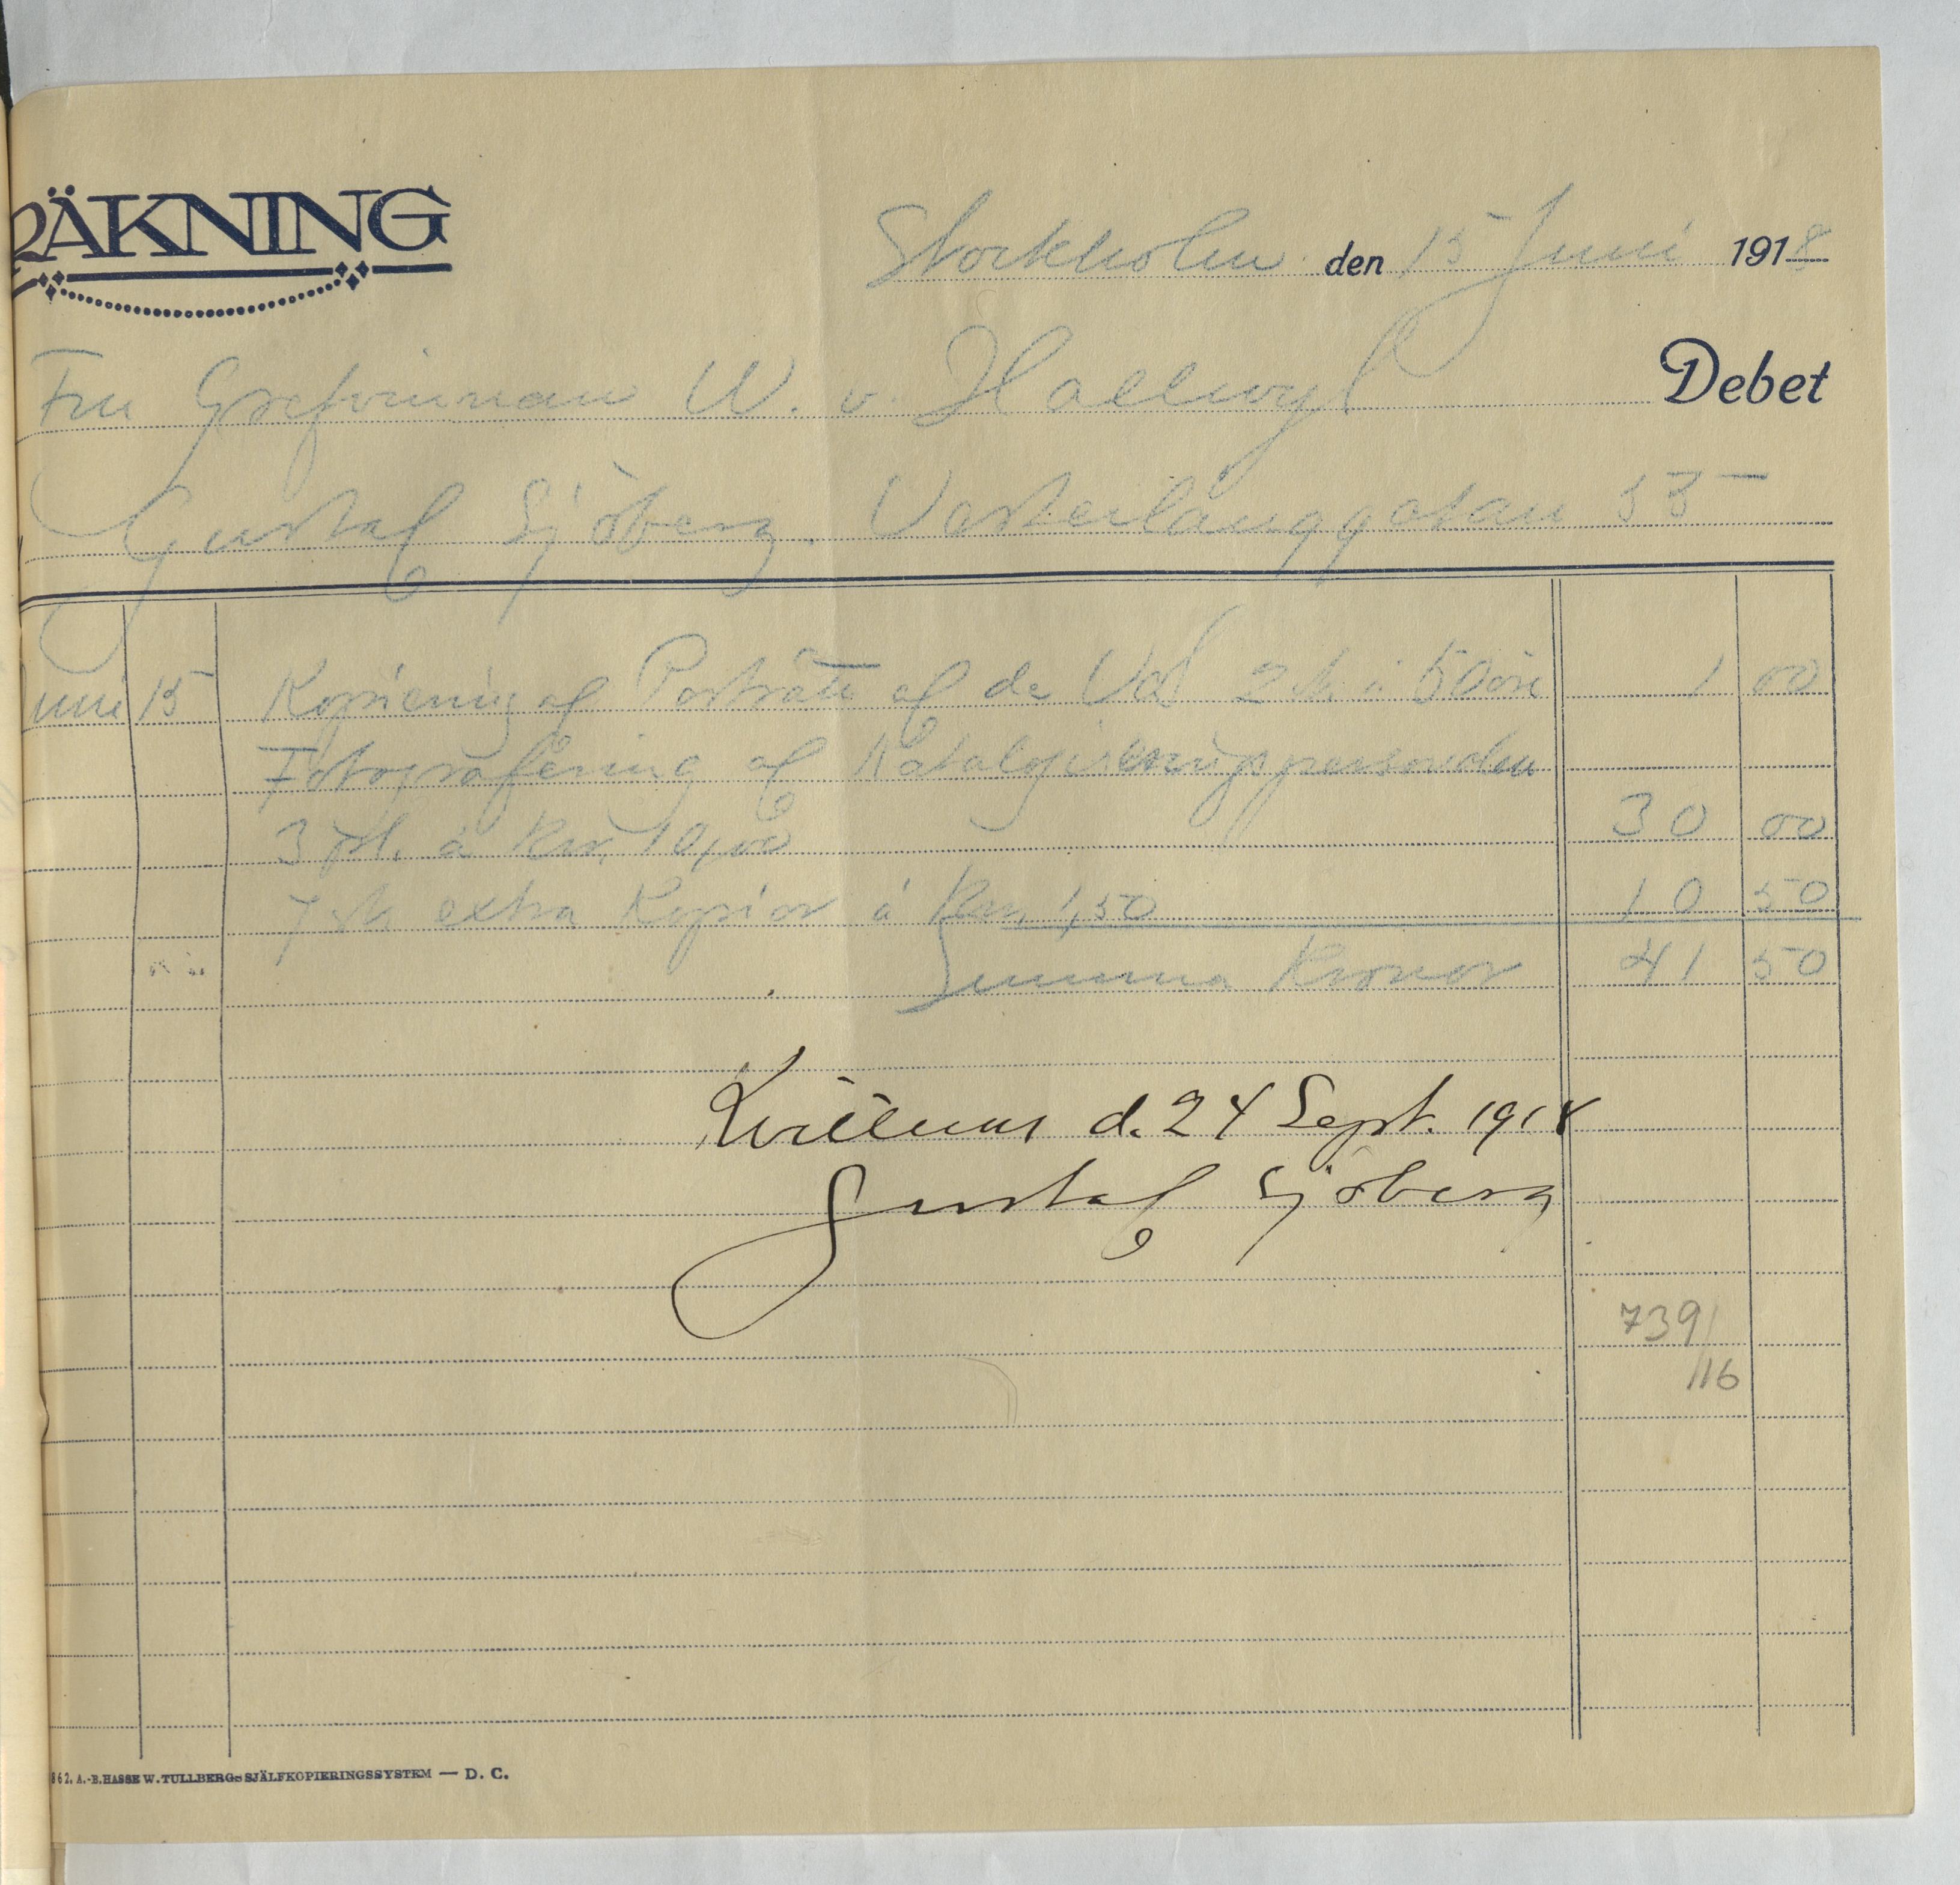 RÄKNING
Stockholm den 15 Juni 1918
Fru Grefvinnan W. v. Hallwyl Debet
Gustaf Sjöberg. Vesterlånggatan 55
Juni 15 Kopiering af Porträtt af de Val 2 st. à 50 öre 1 00
Fotografering af Katalogiseringspersonalen
3 pl. à Kr. 10,00 30 00
7 st. extra Kopior à Kr. 1,50 10 50
Summa Kronor 41 50
Kvitteras d. 24 Sept. 1918
Gustaf Sjöberg
739/
/16
862. A.-B. HASSE W. TULLBERGS SJÄLFKOPIERINGSSYSTEM — D. C.